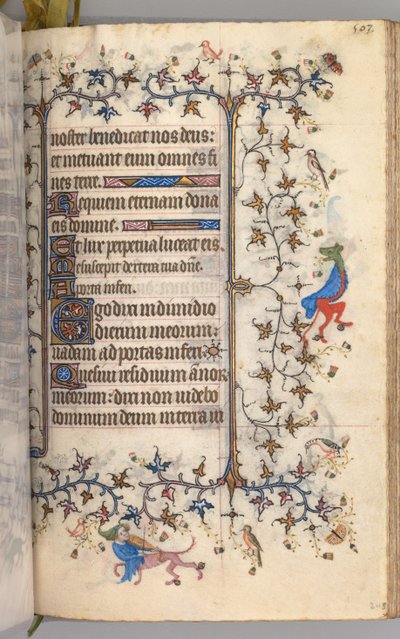 507.
noster benedicat nos deus:
et metuant eum omnes fi
nes terre.
Requiem eternam dona
eis domine.
Et lux perpetua luceat eis.
Me suscepit dextera tua dñe.
A porta inferi.
Ego dixi in dimidio
dierum meorum:
vadam ad portas inferi.
Quesivi residuum annor
meorum: dixi non videbo
dominum deum in terra vi